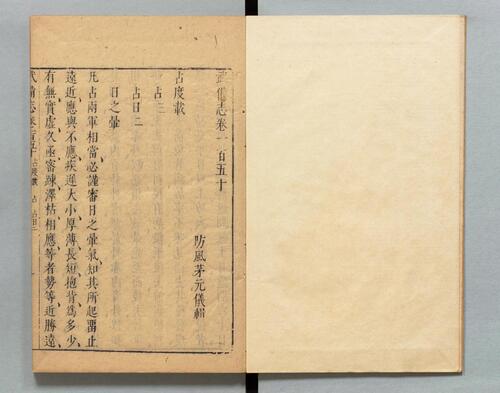 武備志卷一百五十
防風茅元儀輯
占度載
占三
占日二
日之暈
凡占兩軍相當必謹審日之暈氣知其所起畱止
遠近應與不應疾遲大小厚薄長短抱背為多少
有無實虛久亟密疎澤枯相應等者勢等近勝遠
武備志卷一百五十 占度載 占 占日二